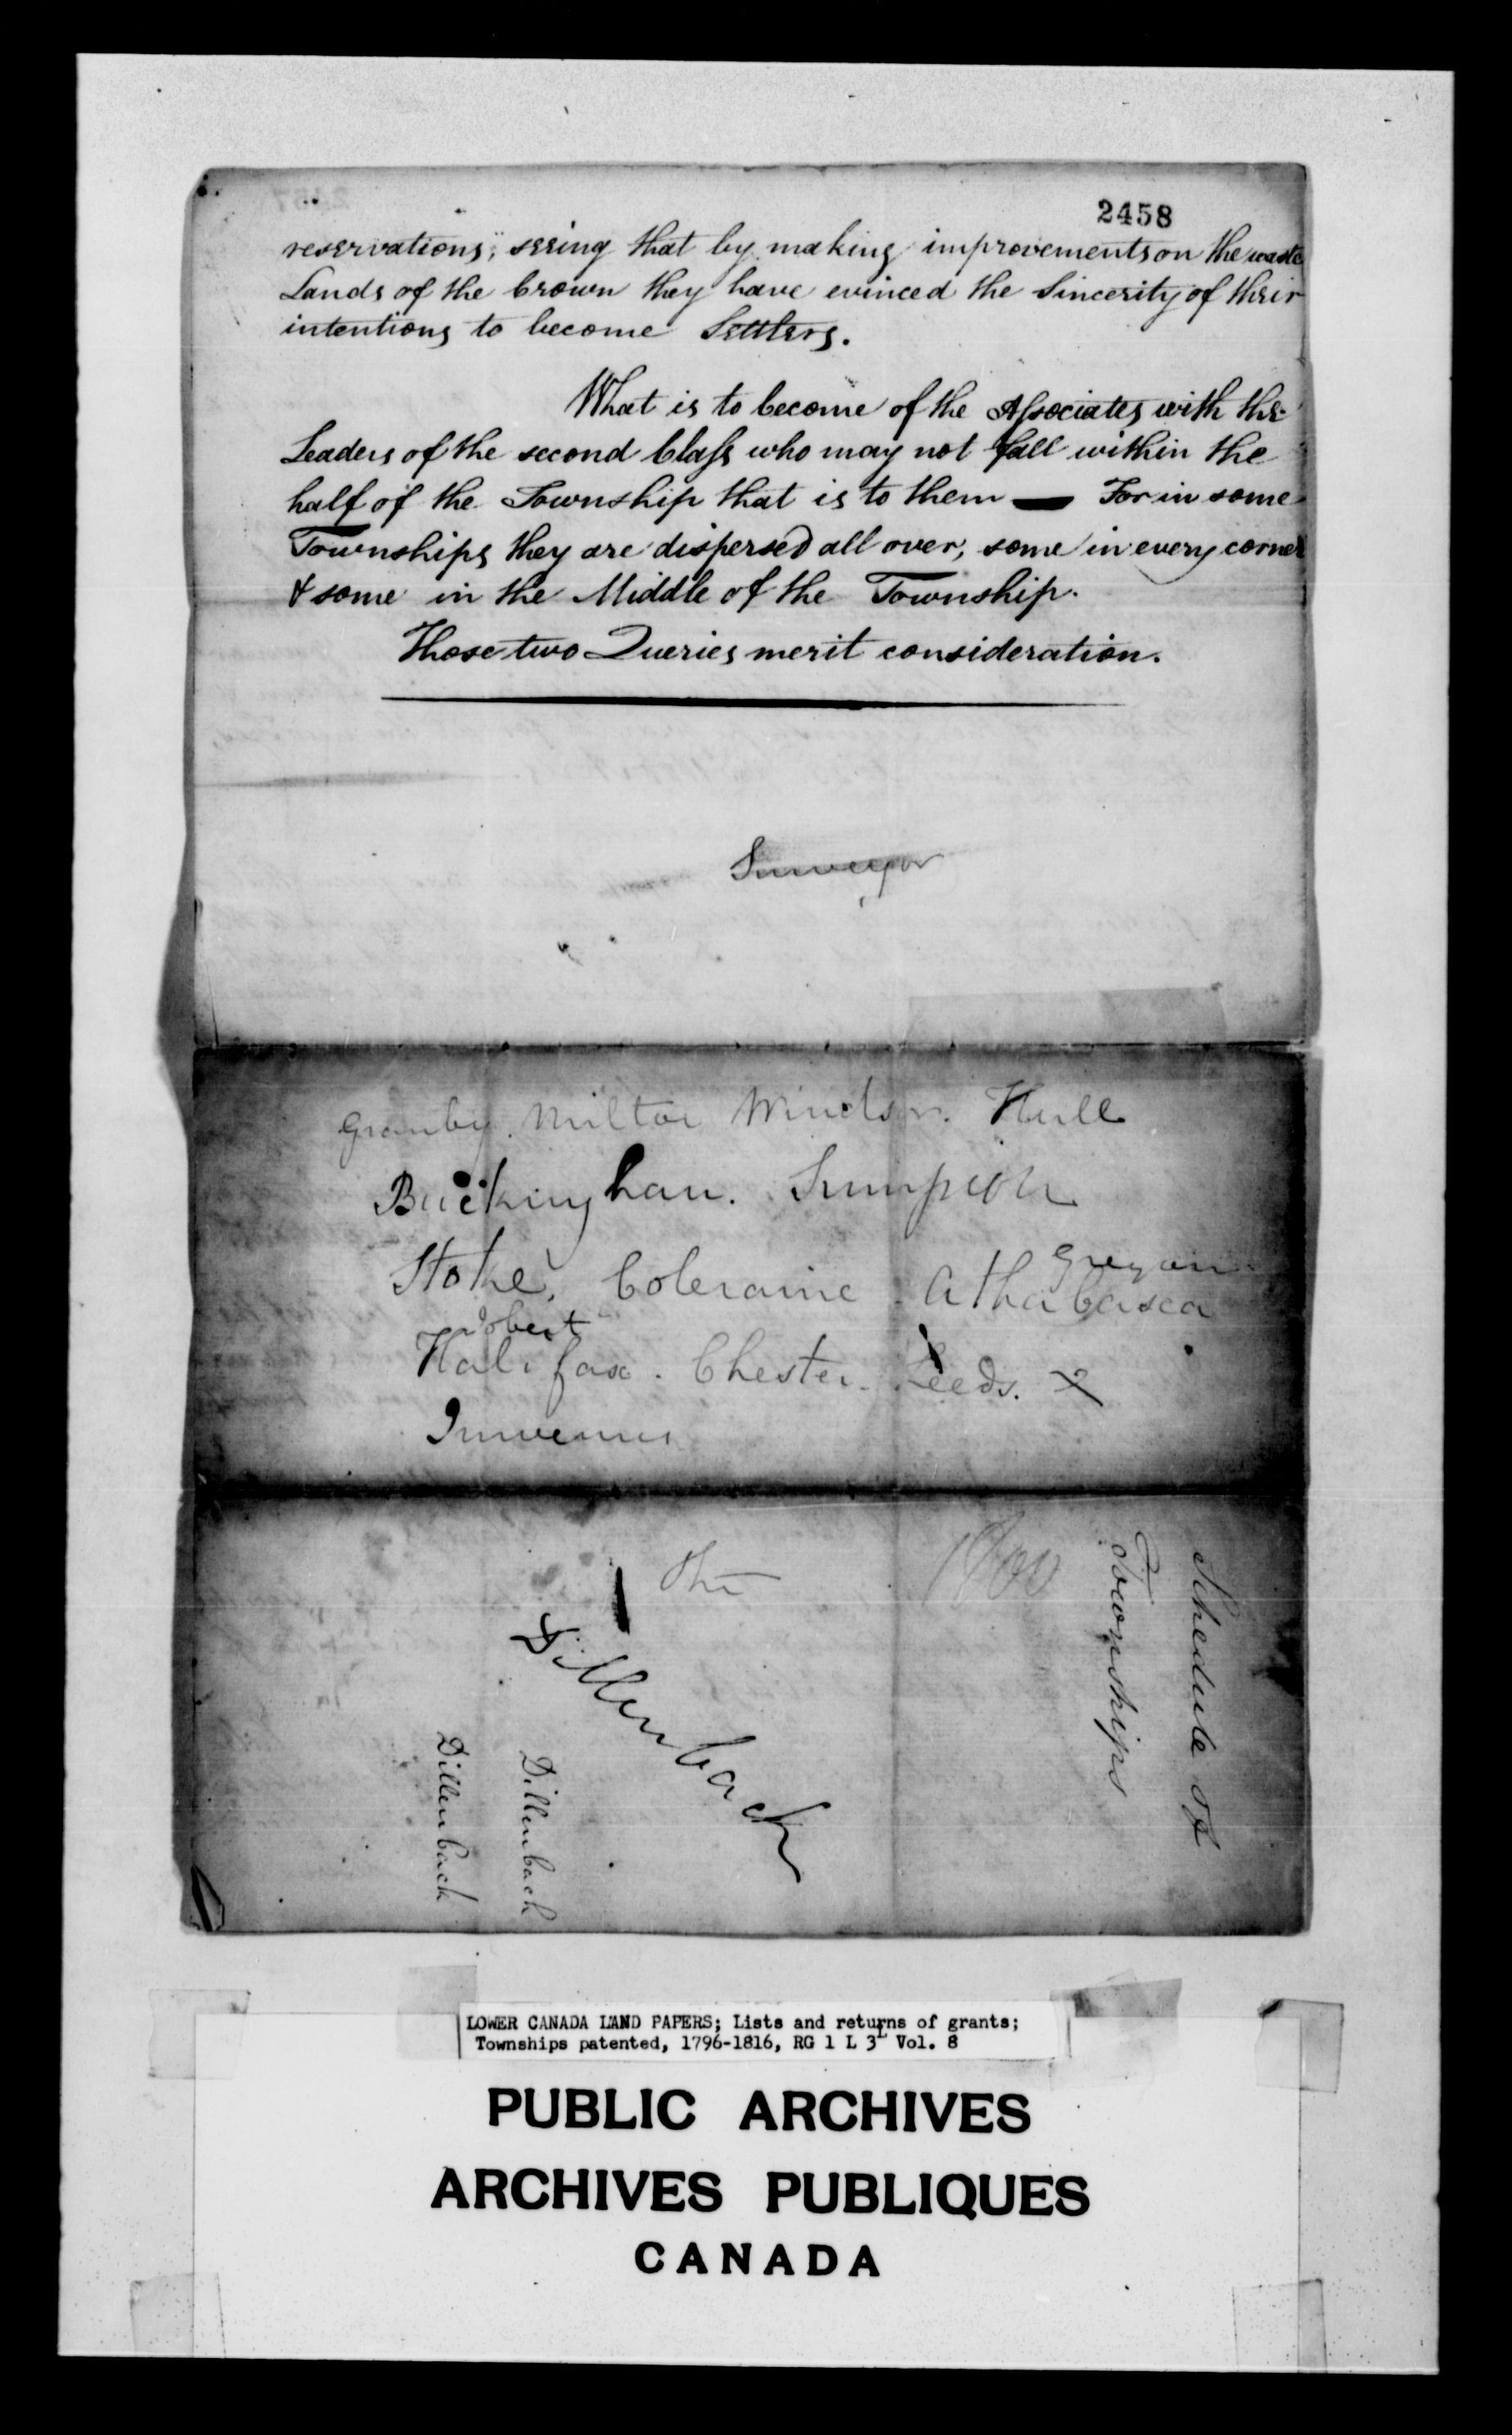 2458
reservations, seeing that by making improvements on the waste
Lands of the Crown they have evinced the Sincerity of their
intentions to become Settlers.
What is to become of the Associates with the
Leaders of the second Class who may not fall within the
half of the Township that is to them — For in some
Townships they are dispersed all over, some in every corner
& some in the Middle of the Township.
Those two Queries merit consideration.
Surveyor
Granby. Milton Windsor. Hull
Buckingham. Simpson
Stoke, Coleraine Athabasca
Halifax. Chester. Leeds. x
Inverness
the
1800
Schedule of
Townships
Dillenbach
Dillenbach
Dillenbach
LOWER CANADA LAND PAPERS; Lists and returns of grants;
Townships patented, 1796-1816, RG 1 L 3L Vol. 8
PUBLIC ARCHIVES
ARCHIVES PUBLIQUES
CANADA